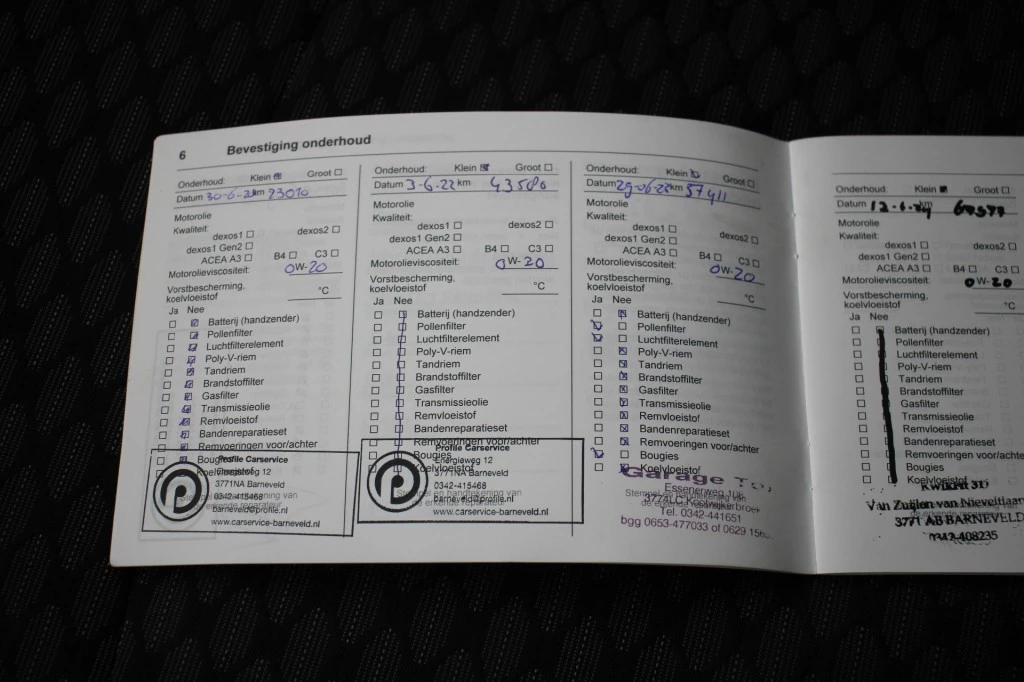 6 Bevestiging onderhoud
Onderhoud: Klein Groot
Datum 30-6-2 km 23010
Motorolie
Kwaliteit:
dexos1 dexos2
dexos1 Gen2
ACEA A3 B4 C3
Motorolieviscositeit: 0W-20
Vorstbescherming,
koelvloeistof °C
Ja Nee
Batterij (handzender)
Pollenfilter
Luchtfilterelement
Poly-V-riem
Tandriem
Brandstoffilter
Gasfilter
Transmissieolie
Remvloeistof
Bandenreparatieset
Remvoeringen voor/achter
Bougies
Koelvloeistof
Profile Carservice
Energieweg 12
3771NA Barneveld
0342-415468
barneveld@profile.nl
www.carservice-barneveld.nl
Onderhoud: Klein Groot
Datum 3-6-22 km 43580
Motorolie
Kwaliteit:
dexos1 dexos2
dexos1 Gen2
ACEA A3 B4 C3
Motorolieviscositeit: 0W-20
Vorstbescherming,
koelvloeistof °C
Ja Nee
Batterij (handzender)
Pollenfilter
Luchtfilterelement
Poly-V-riem
Tandriem
Brandstoffilter
Gasfilter
Transmissieolie
Remvloeistof
Bandenreparatieset
Remvoeringen voor/achter
Bougies
Koelvloeistof
Profile Carservice
Energieweg 12
3771NA Barneveld
0342-415468
Stempel en handtekening van
barneveld@profile.nl
de erkende reparateur
www.carservice-barneveld.nl
Onderhoud: Klein Groot
Datum 29-06- km 57411
Motorolie
Kwaliteit:
dexos1 dexos2
dexos1 Gen2
ACEA A3 B4 C3
Motorolieviscositeit: 0W-20
Vorstbescherming,
koelvloeistof °C
Ja Nee
Batterij (handzender)
Pollenfilter
Luchtfilterelement
Poly-V-riem
Tandriem
Brandstoffilter
Gasfilter
Transmissieolie
Remvloeistof
Bandenreparatieset
Remvoeringen voor/achter
Bougies
Koelvloeistof
Garage
Essenerweg
Stempel en handtekening van
3774LC Kootwijkerbroek
de erkende reparateur
Tel. 0342-441651
bgg 0653-477033 of 0629
Onderhoud: Klein Groot
Datum km
Motorolie
Kwaliteit:
dexos1 dexos2
dexos1 Gen2
ACEA A3 B4 C3
Motorolieviscositeit: 0W-20
Vorstbescherming,
koelvloeistof °C
Ja Nee
Batterij (handzender)
Pollenfilter
Luchtfilterelement
Poly-V-riem
Tandriem
Brandstoffilter
Gasfilter
Transmissieolie
Remvloeistof
Bandenreparatieset
Remvoeringen voor/achter
Bougies
Koelvloeistof
Van Zuijlen van Nieveltlaan
3771 AB BARNEVELD
0342-408235